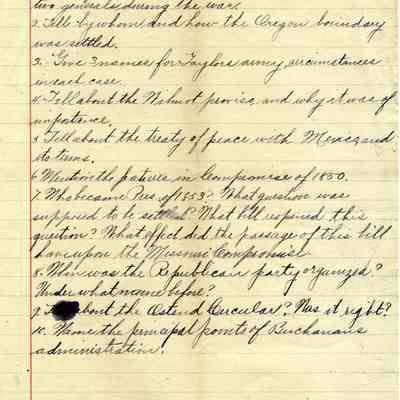 two generals during the war.
2. Tell by whom and how the Oregon boundary
was settled.
3. Give 3 names for Taylors army, circumstances
in each case.
4. Tell about the Wilmot proviso and why it was of
importance.
5. Tell about the treaty of peace with Mexico and
its terms.
6. Mention the features in Compromise of 1850.
7. Who became Pres. of 1853? What question was
supposed to be settled? What bill reopened this
question? What effect did the passage of this bill
have upon the Missouri Compromise
8. When was the Republican party organized?
Under what name before?
9. about the Ostend Circular? Was it right?
10. Name the principal points of Buchanan's
administration.